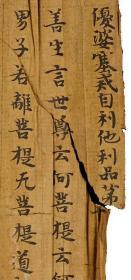 優婆塞戒自利他利品第
善生言世尊云何菩提云何
男子若離菩提无菩提道